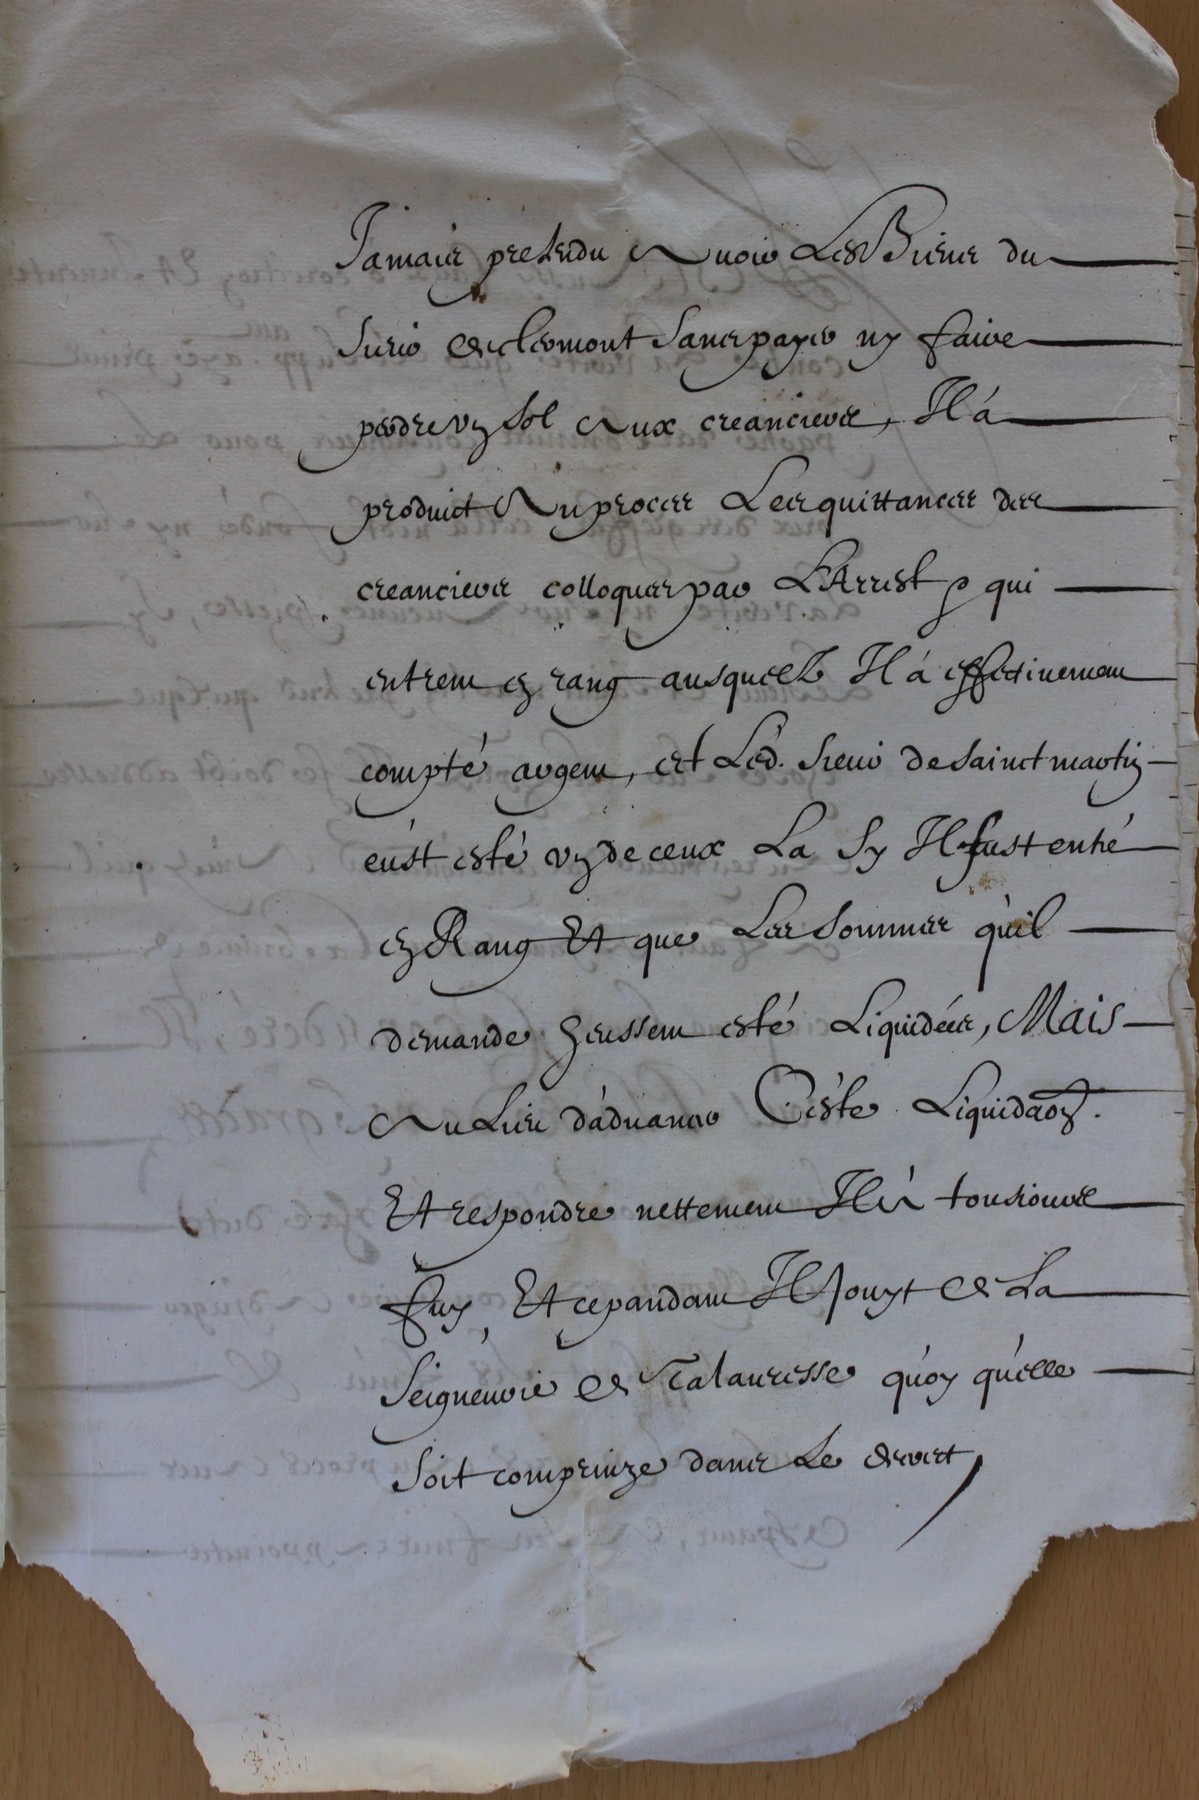 Jamais pretendu Auoir Les Biens du
Sieur de clermont sans payer ny faire
perdre vn sol Aux creanciers, Il à
produict Au procez Les quittances des
creanciers colloques par L'Arrest qui
entrent en rang ausquels Il á effectiuement
compté argent, et Led. sieur de sainct martin
eust esté vn de ceux La sy Il fust entré
en Rang Et que Les sommes qu'il
demande Eussent esté Liquidées, Mais
Au Lieu d'aduancer Ceste Liquidaon.
Et respondre nettement Il à tousiours
fuy, Et cepandant Il Jouyt de La
seigneurie de Talauresse quoy qu'elle
soit comprinze dans Le decret,